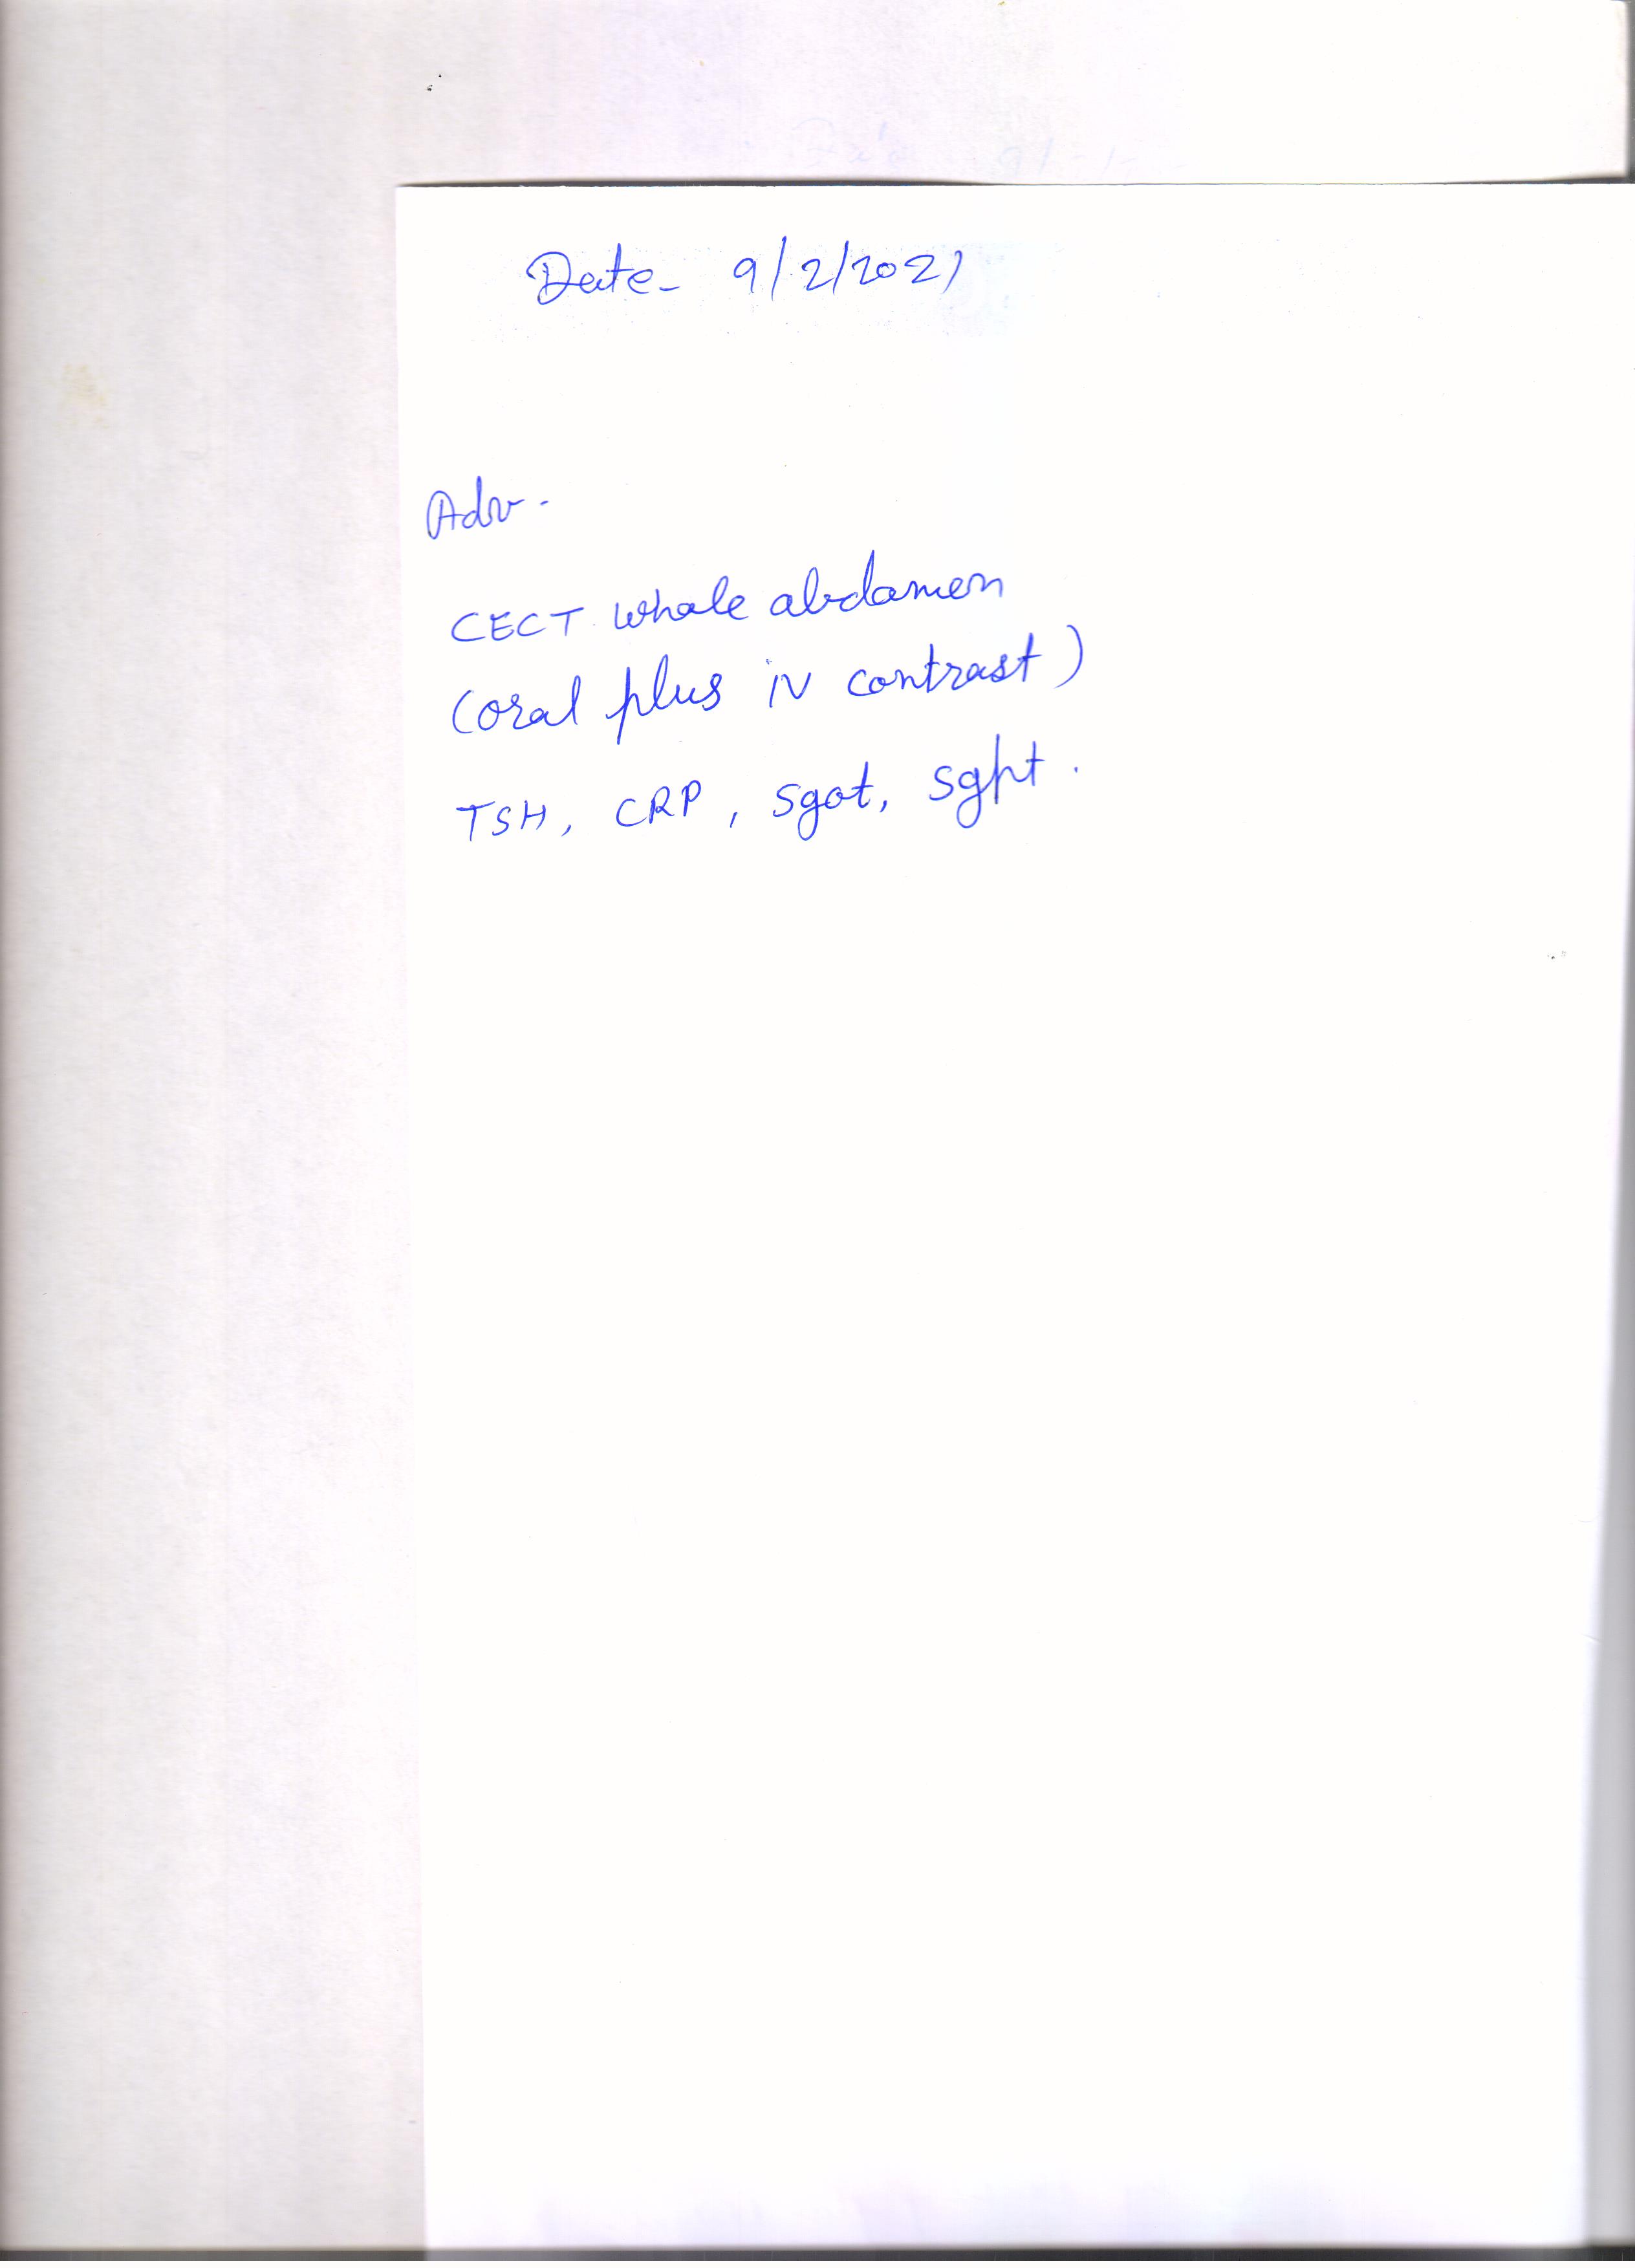 Date- 9/2/2021
Adv-
CECT whole abdomen
(oral plus IV contrast)
TSH, CRP, sgot, sgpt.